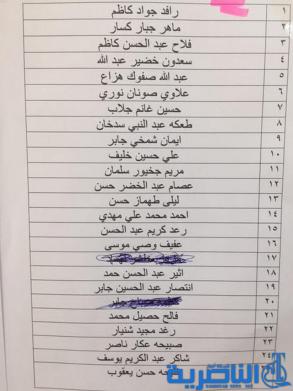 ١ رافد جواد كاظم
٢ ماهر جبار كسار
٣ فلاح عبد الحسن كاظم
٤ سعدون خضير عبد الله
٥ عبد الله صفوك هزاع
٦ علاوي صونان نوري
٧ حسين غانم جلاب
٨ طعكه عبد النبي سدخان
٩ ايمان شمخي جابر
١٠ علي حسين خليف
١١ مريم جخيور سلمان
١٢ عصام عبد الخضر حسن
١٣ ليلى طهماز حسن
١٤ احمد محمد علي مهدي
١٥ رعد كريم عبد الحسن
١٦ عفيف وصي موسى
١٧
١٨ اثير عبد الحسن حمد
١٩ انتصار عبد الحسين جابر
٢٠
٢١ فالح حصيل محمد
٢٢ رغد مجيد شنيار
٢٣ صبيحه عكار ناصر
٢٤ شاكر عبد الكريم يوسف
حسن يعقوب
الناصرية